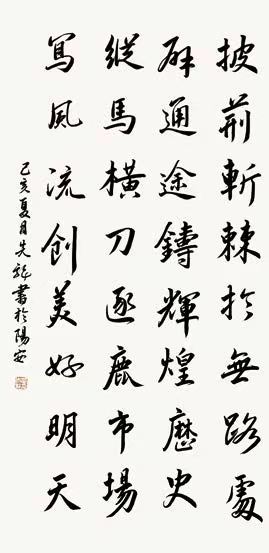 披荊斬棘於無路處
辟通途鑄輝煌歷史
縱馬橫刀逐鹿市場
寫風流創美好明天
己亥夏月先龍書於陽安